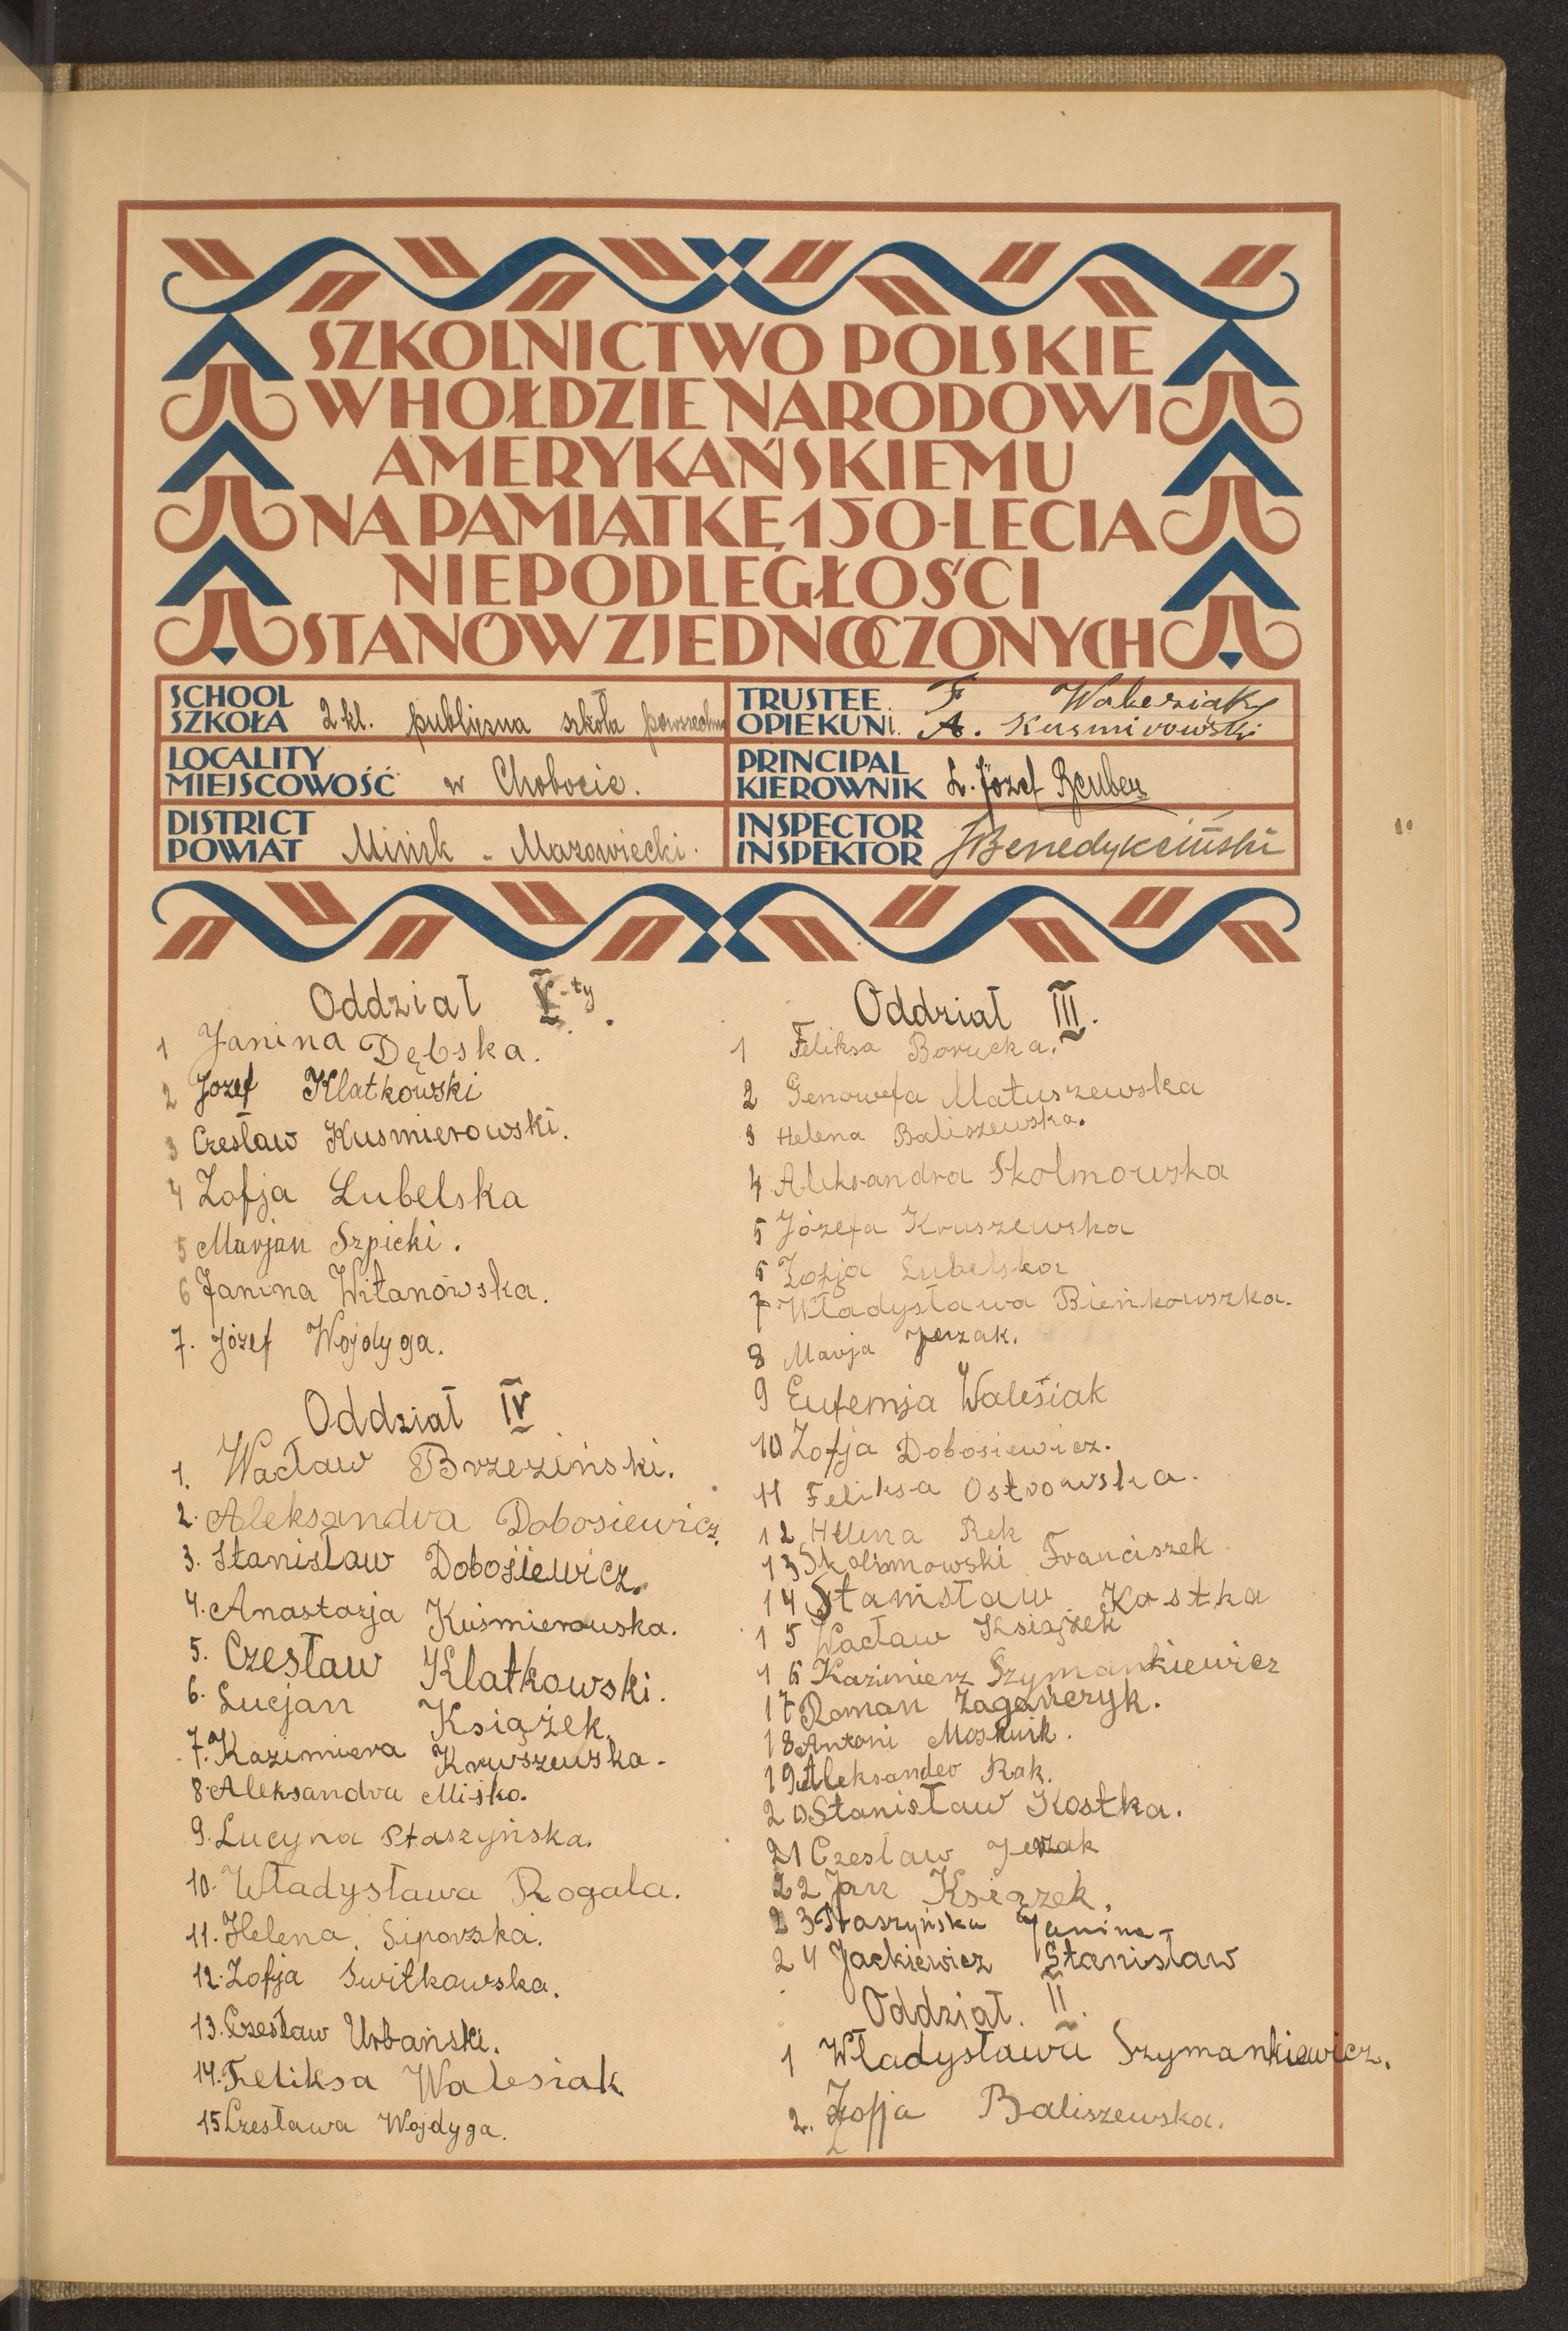 SZKOLNICTWO POLSKIE
W HOŁDZIE NARODOWI
AMERYKAŃSKIEMU
NA PAMIĄTKĘ 150-LECIA
NIEPODLEGŁOŚCI
STANÓW ZJEDNOCZONYCH
SCHOOL
SZKOŁA 2 kl. publiczna szkoła powszechna
LOCALITY
MIEJSCOWOŚĆ w Chobocie.
DISTRICT
POWIAT Mińsk - Mazowiecki.
TRUSTEE F Walesiak
OPIEKUNI. A. Kusmirowski
PRINCIPAL
KIEROWNIK Józef
INSPECTOR
INSPEKTOR Benedykciński
Oddział V-ty.
1 Janina Dębska.
2 Jozef Klatkowski
3 Czesław Kusmierowski.
4 Zofja Lubelska
5 Marjan Szpicki.
6 Janina Witanowska.
7. Józef Wojdyga.
Oddział IV
1. Wacław Brzeziński.
2. Aleksandra Dobosiewicz.
3. Stanisław Dobosiewicz.
4. Anastazja Kuśmierowska.
5. Czesław Klatkowski.
6. Lucjan Książek.
7. Kazimiera Kruszewska.
8. Aleksandra Miśko.
9. Lucyna Staszyńska.
10. Władysława Rogala.
11. Helena Siporska.
12. Zofja Switkowska.
13. Czesław Urbański.
14. Feliksa Walesiak
15 Czesława Wojdyga.
Oddział III.
1 Feliksa Borucka.
2 Genowefa Matuszewska
3 Helena Baliszewska.
4 Aleksandra Skolmowska
5 Józefa Kruszewska
6 Zofja Lubelska
7 Władysława Bieńkowszka.
8 Marja Jerzak.
9 Eufemja Walesiak
10 Zofja Dobosiewicz.
11 Feliksa Ostrowska.
12 Helena Rek
13 Skolimowski Franciszek
14 Stanisław Kostka
15 Wacław Książek
16 Kazimierz Szymankiewicz
17 Roman Zagańczyk.
18 Antoni
19 Aleksander Rak.
20 Stanisław Kostka.
21 Czesław Jerzak
22 Jan Książek.
23 Staszyńska Janina
24 Jackiewicz Stanisław
Oddział. II.
1 Władysława Szymankiewicz.
2. Zofja Baliszewska.